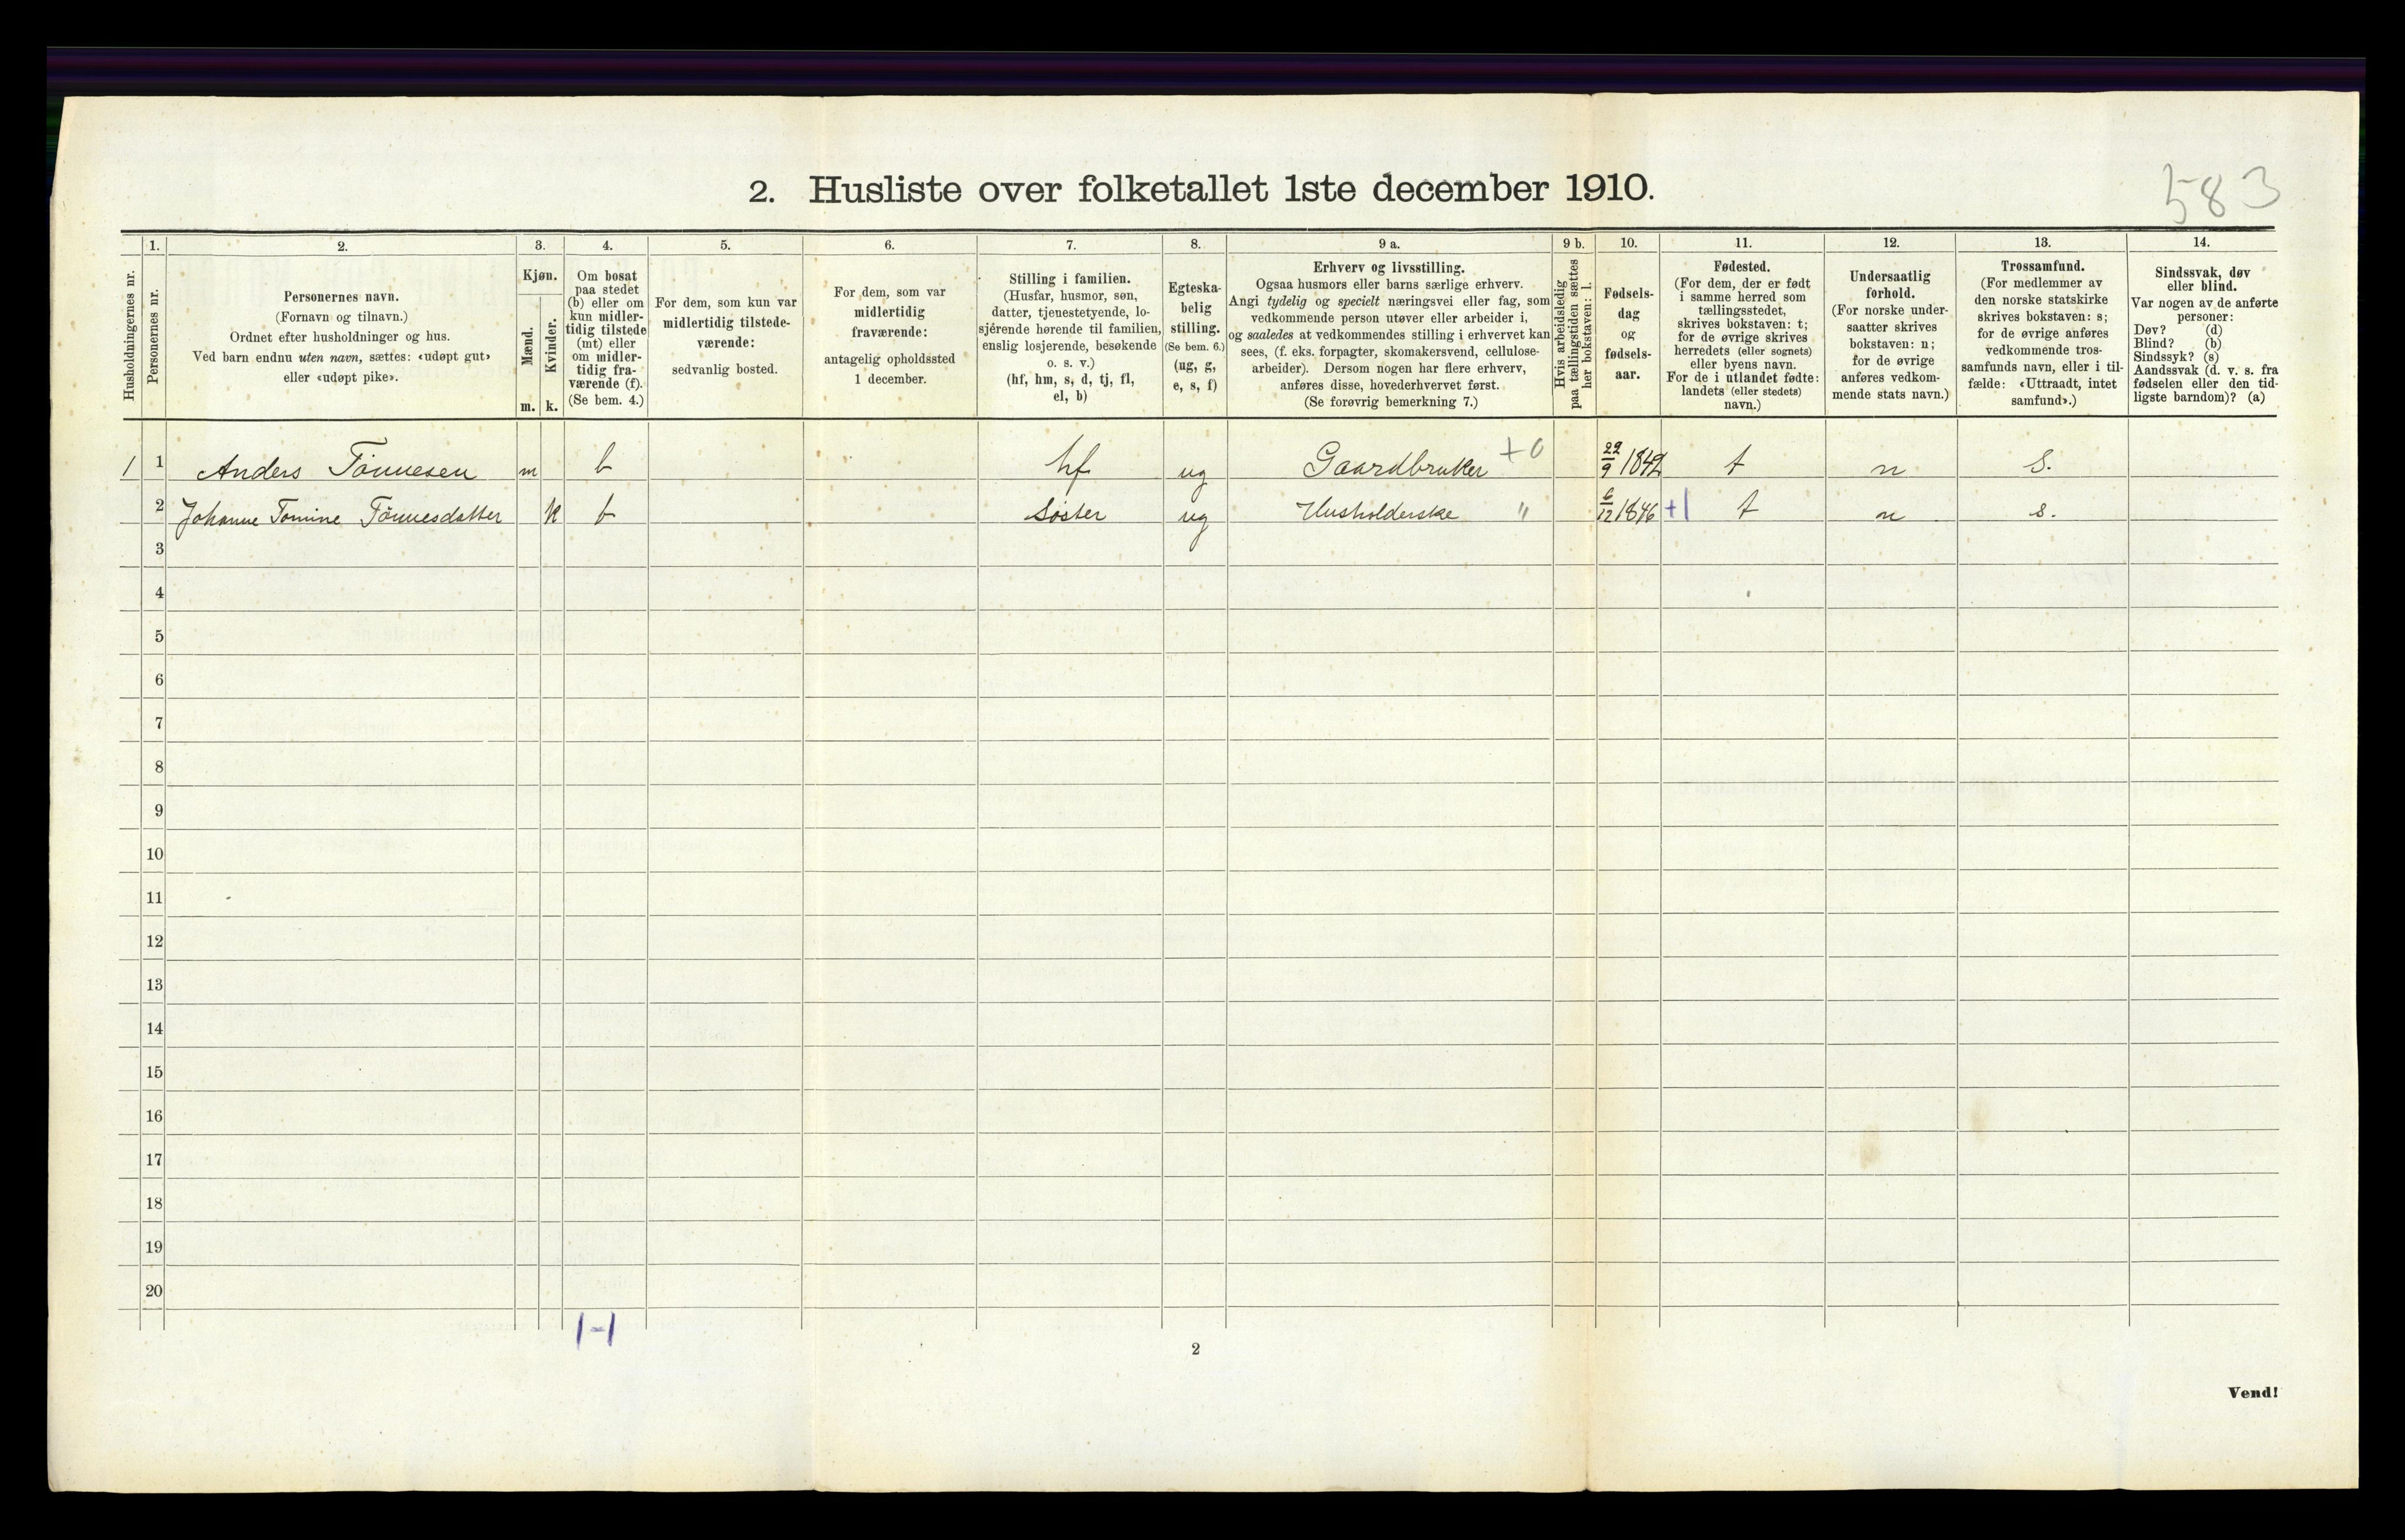 583
2. Husliste over folketallet 1ste december 1910.
Husholdningernes nr.
1.
Personernes nr.
2.
Personernes navn.
(Fornavn og tilnavn.)
Ordnet efter husholdninger og hus.
Ved barn endnu uten navn, sættes: «udøpt gut»
eller «udøpt pike».
3.
Kjøn.
Mænd.
m.
Kvinder.
k.
4.
Om bosat
paa stedet
(b) eller om
kun midler-
tidig tilstede
(mt) eller
om midler-
tidig fra-
værende (f).
(Se bem. 4.)
5.
For dem, som kun var
midlertidig tilstede-
værende:
sedvanlig bosted.
6.
For dem, som var
midlertidig
fraværende:
antagelig opholdssted
1 december.
7.
Stilling i familien.
(Husfar, husmor, søn,
datter, tjenestetyende, lo-
sjérende hørende til familien,
enslig losjerende, besøkende
o. s. v.)
(hf, hm, s, d, tj, fl,
el, b)
8.
Egteska-
belig
stilling.
(Se bem. 6.)
(ug, g,
e, s, f)
9 a.
Erhverv og livsstilling.
Ogsaa husmors eller barns særlige erhverv.
Angi tydelig og specielt næringsvei eller fag, som
vedkommende person utøver eller arbeider i,
og saaledes at vedkommendes stilling i erhvervet kan
sees, (f. eks. forpagter, skomakersvend, cellulose-
arbeider). Dersom nogen har flere erhverv,
anføres disse, hovederhvervet først.
(Se forøvrig bemerkning 7.)
9 b.
Hvis arbeidsledig
paa tællingstiden sættes
her bokstaven: l.
10.
Fødsels-
dag
og
fødsels-
aar.
11.
Fødested.
(For dem, der er født
i samme herred som
tællingsstedet,
skrives bokstaven: t;
for de øvrige skrives
herredets (eller sognets)
eller byens navn.
For de i utlandet fødte:
landets (eller stedets)
navn.)
12.
Undersaatlig
forhold.
(For norske under-
saatter skrives
bokstaven: n;
for de øvrige
anføres vedkom-
mende stats navn.)
13.
Trossamfund.
(For medlemmer av
den norske statskirke
skrives bokstaven: s;
for de øvrige anføres
vedkommende tros-
samfunds navn, eller i til-
fælde: «Uttraadt, intet
samfund».)
14.
Sindssvak, døv
eller blind.
Var nogen av de anførte
personer:
Døv? (d)
Blind? (b)
Sindssyk? (s)
Aandssvak (d. v. s. fra
fødselen eller den tid-
ligste barndom)? (a)
1 1 Anders Tønnesen m b hf ug Gaardbruker +0 22/9 1842 t n S.
2 Johanne Tomine Tønnesdatter k b Søster ug Husholderske " 6/12 1846 +1 t n s.
3
4
5
6
7
8
9
10
11
12
13
14
15
16
17
18
19
20
1-1
2
Vend!